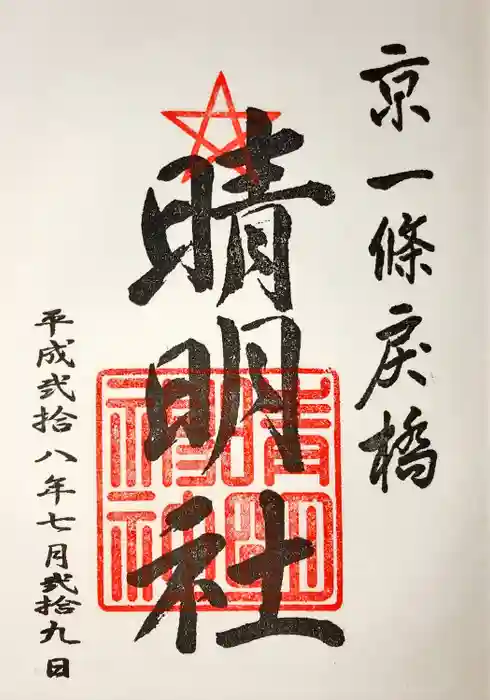 京一條戻橋
晴明社
晴明神社
平成弐拾八年七月弐拾九日